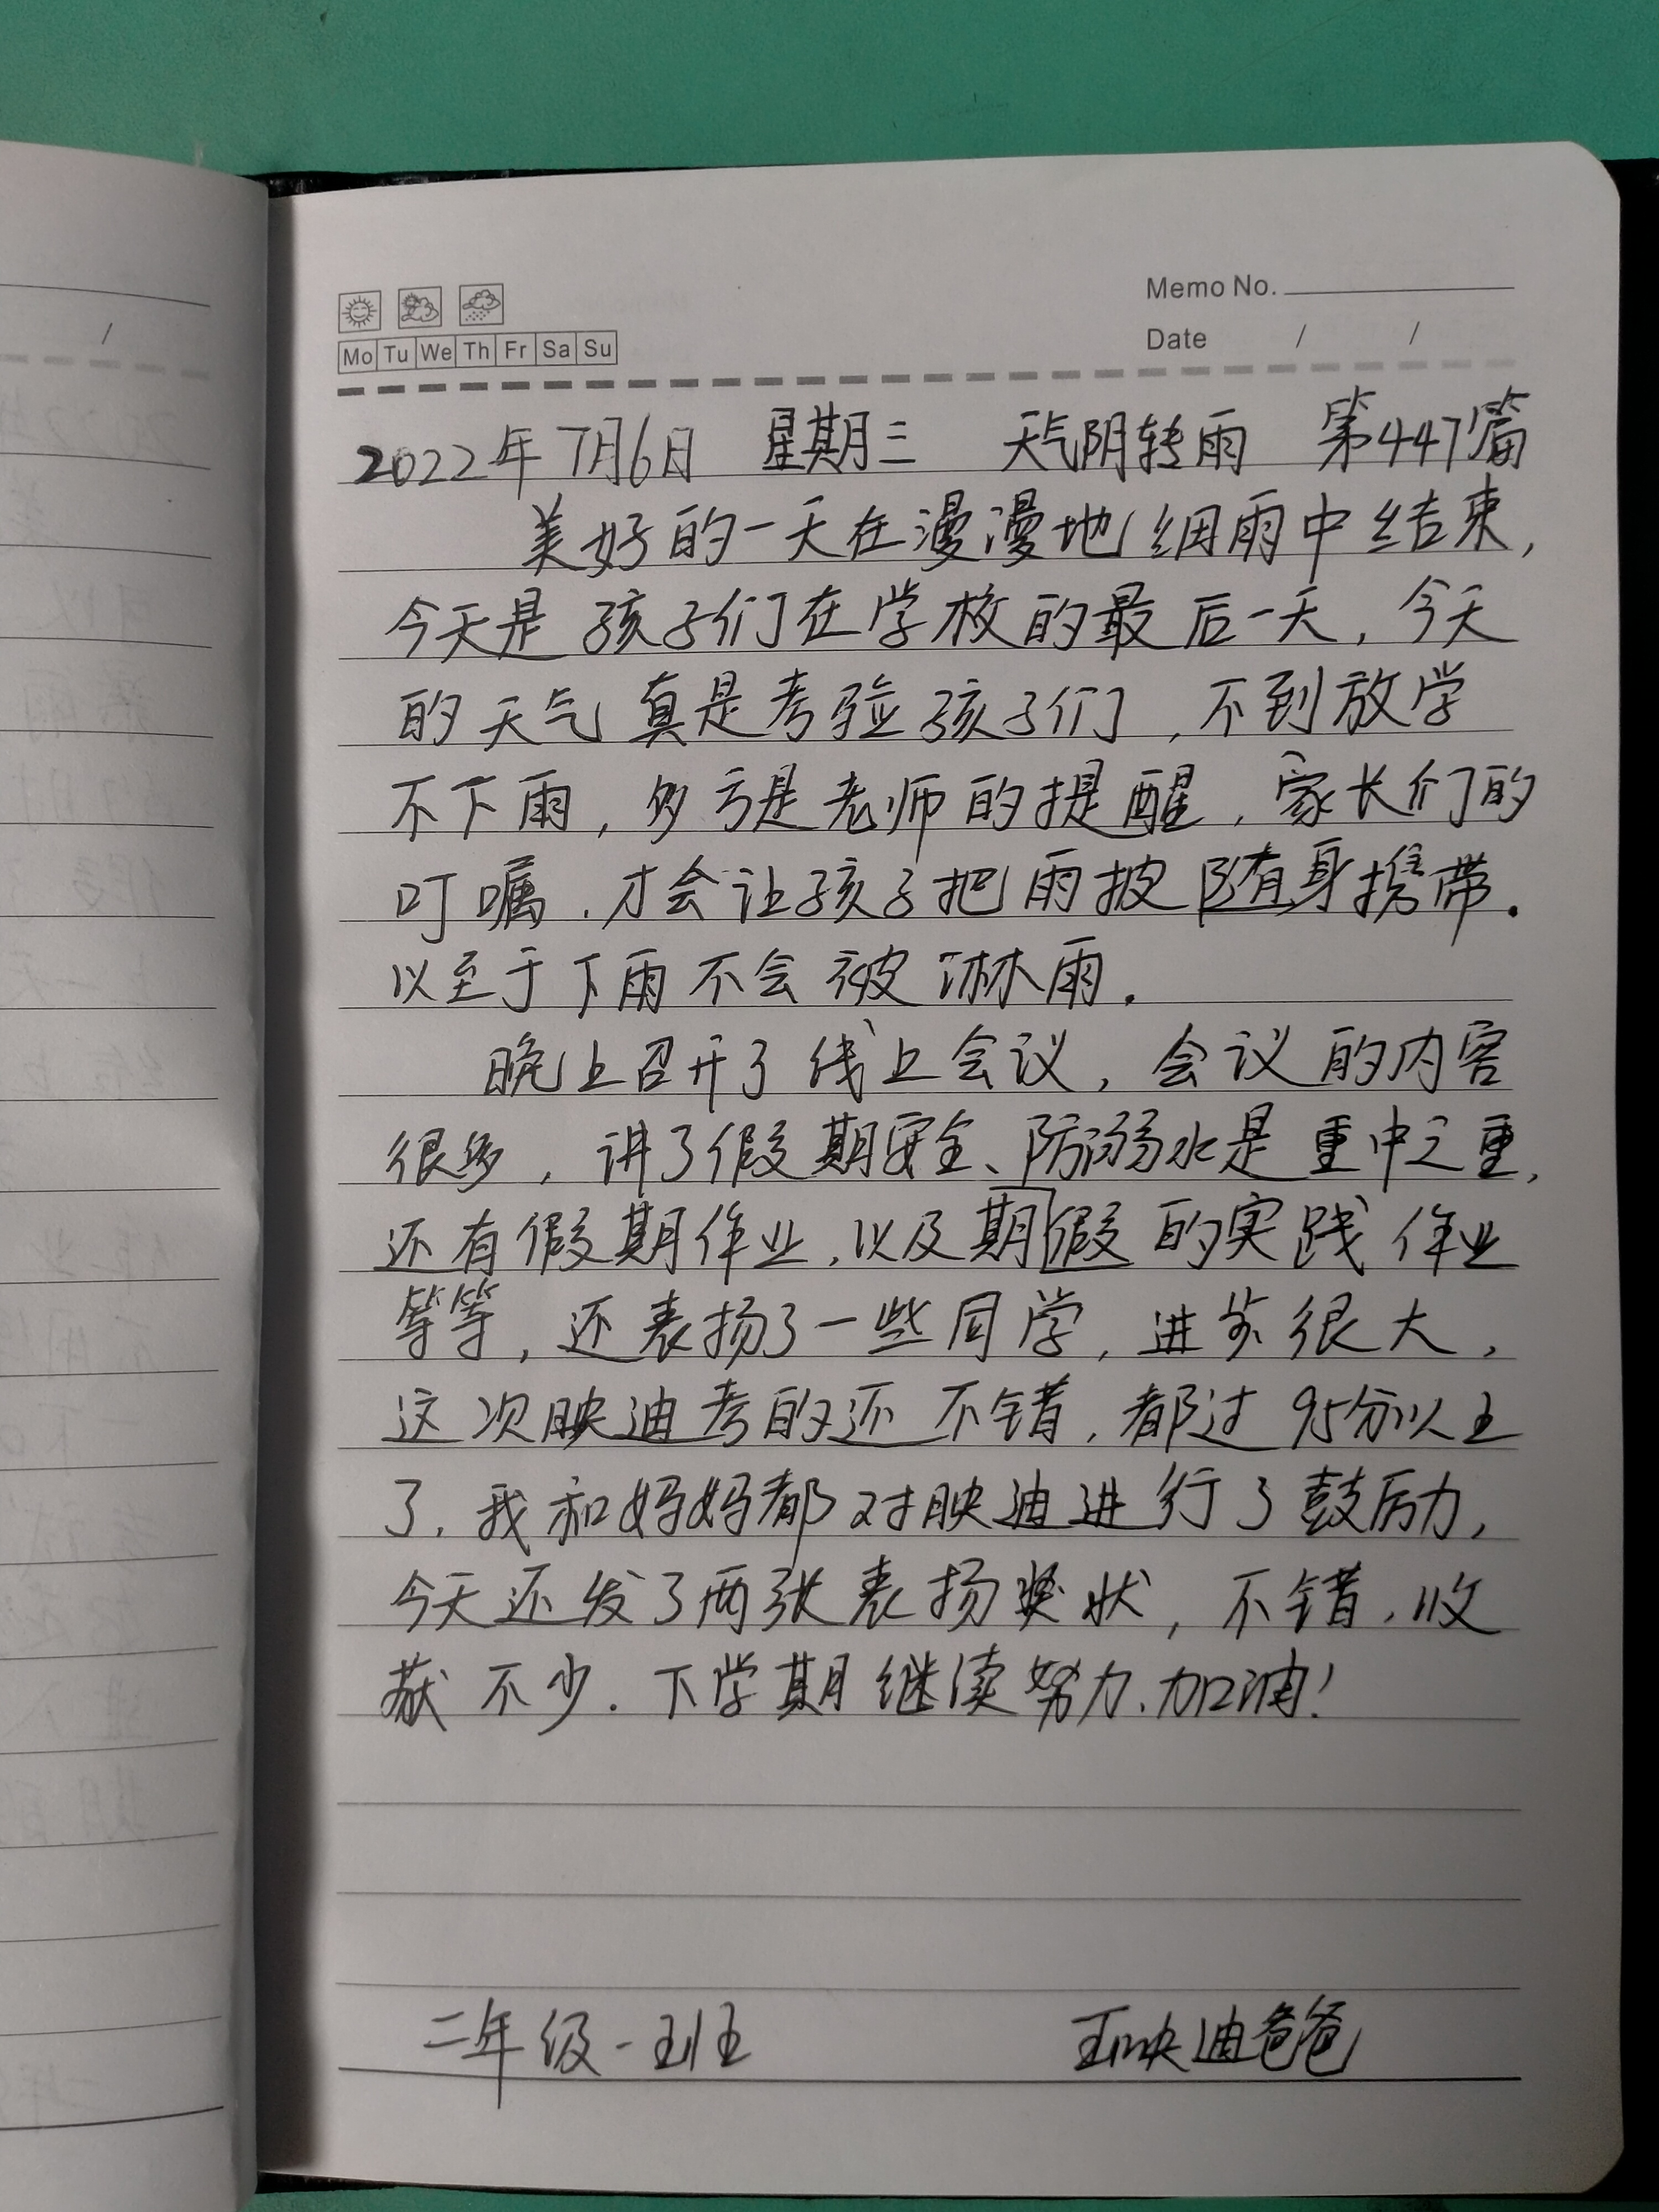 Memo No.
Mo Tu We Th Fr Sa Su
Date / /
2022年7月6日 星期三 天气阴转雨 第447篇
美好的一天在漫漫地细雨中结束,
今天是孩子们在学校的最后一天,今天
的天气真是考验孩子们,不到放学
不下雨,多亏是老师的提醒,家长们的
叮嘱.才会让孩子把雨披随身携带.
以至于下雨不会被淋雨.
晚上召开了线上会议,会议的内容
很多,讲了假期安全、防溺水是重中之重,
还有假期作业.以及期假的实践作业
等等,还表扬了一些同学,进步很大,
这次映迪考的还不错,都过95分以上
了.我和妈妈都对映迪进行了鼓励,
今天还发了两张表扬奖状,不错,收
获不少.下学期继续努力、加油!
二年级一班 王映迪爸爸